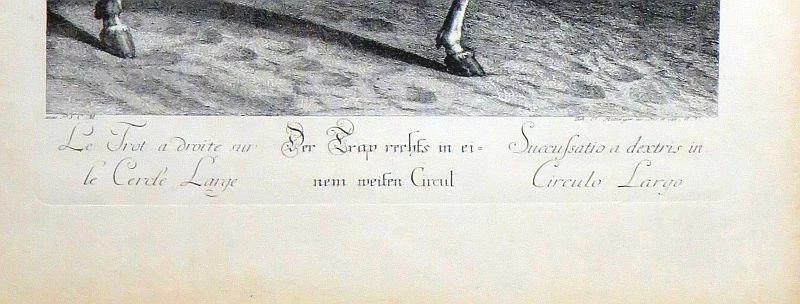 Le Trot a droite sur
le Cercle Large
Der Trap rechts in ei=
nem weiten Circul
Succussatio a dextris in
Circulo Largo